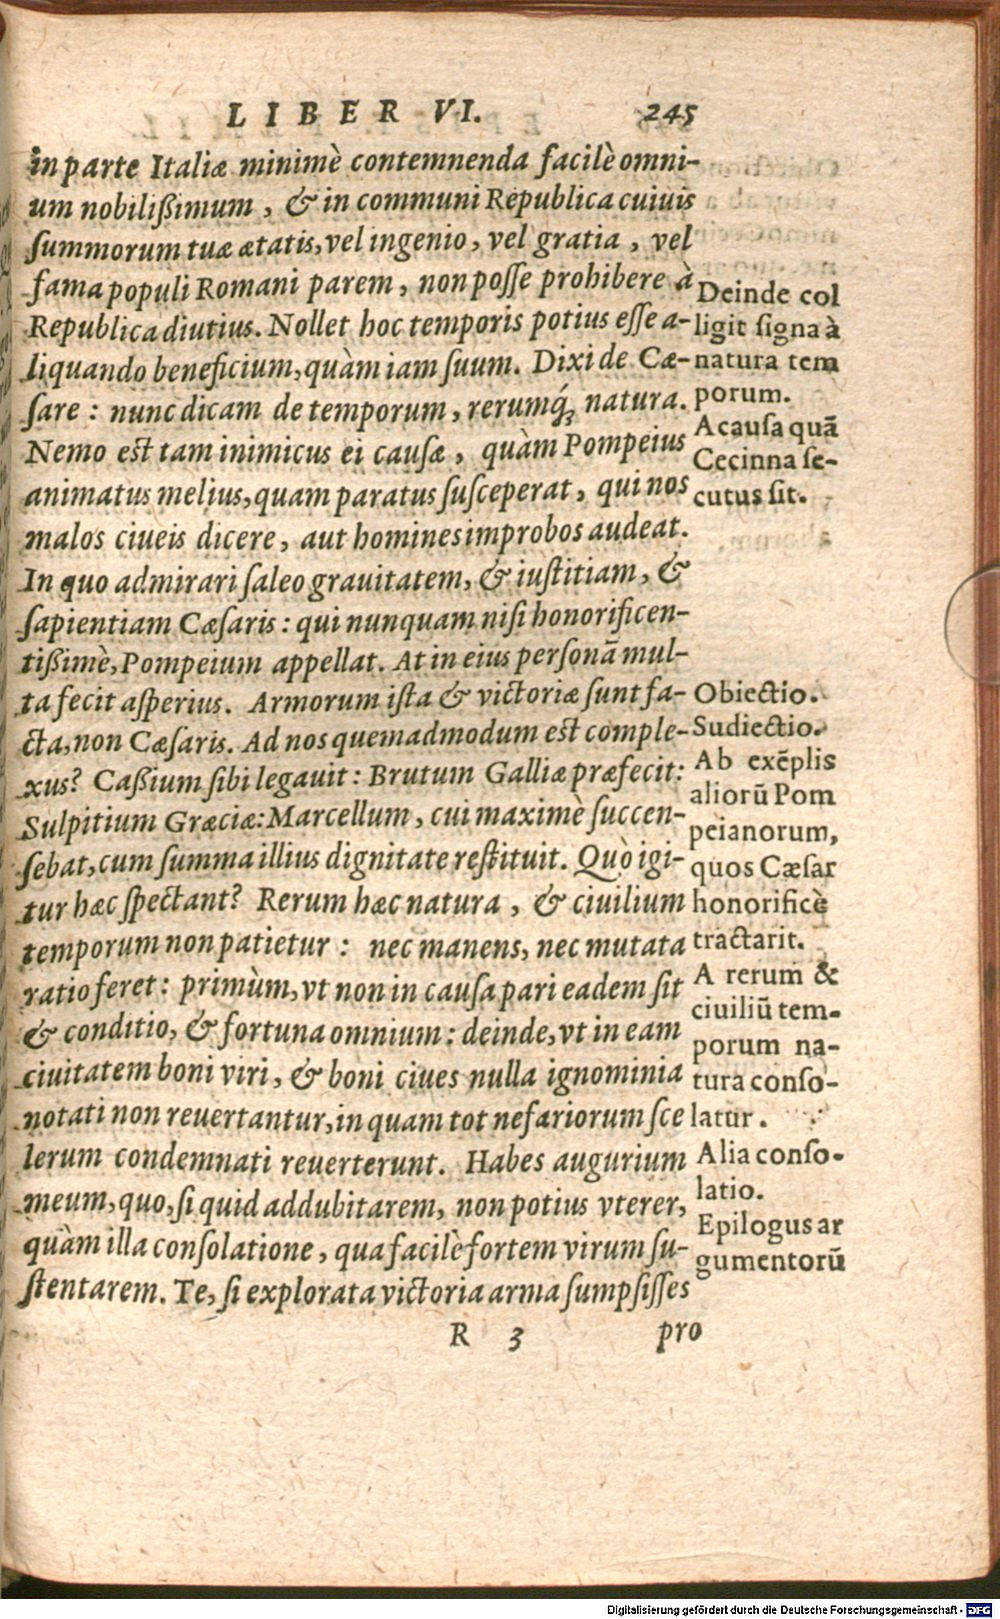 LIBER VI. 245
in parte Italiæ minimè contemnenda facilè omni-
um nobilißimum, & in communi Republica cuiuis
summorum tuæ ætatis, vel ingenio, vel gratia, vel
fama populi Romani parem, non posse prohibere à
Republica diutius. Nollet hoc temporis potius esse a-
liquando beneficium, quàm iam suum. Dixi de Cæ-
sare: nunc dicam de temporum, rerumq́; natura.
Nemo est tam inimicus ei causæ, quàm Pompeius
animatus melius, quam paratus susceperat, qui nos
malos ciueis dicere, aut homines improbos audeat.
In quo admirari saleo grauitatem, & iustitiam, &
sapientiam Cæsaris: qui nunquam nisi honorificen-
tißimè, Pompeium appellat. At in eius personã mul-
ta fecit asperius. Armorum ista & victoriæ sunt fa-
cta, non Cæsaris. Ad nos quemadmodum est comple-
xus? Caßium sibi legauit: Brutum Galliæ præfecit:
Sulpitium Græciæ: Marcellum, cui maximè succen-
sebat, cum summa illius dignitate restituit. Quò igi-
tur hæc spectant? Rerum hæc natura, & ciuilium
temporum non patietur: nec manens, nec mutata
ratio feret: primùm, vt non in causa pari eadem sit
& conditio, & fortuna omnium: deinde, vt in eam
ciuitatem boni viri, & boni ciues nulla ignominia
notati non reuertantur, in quam tot nefariorum sce
lerum condemnati reuerterunt. Habes augurium
meum, quo, si quid addubitarem, non potius vterer,
quàm illa consolatione, qua facilè fortem virum su-
stentarem. Te, si explorata victoria arma sumpsisses
R 3 pro
Deinde col
ligit signa à
natura tem
porum.
A causa quã
Cecinna se-
cutus sit.
Obiectio.
Sudiectio.
Ab exẽplis
aliorũ Pom
peianorum,
quos Cæsar
honorificè
tractarit.
A rerum &
ciuiliũ tem-
porum na-
tura conso-
latur.
Alia conso-
latio.
Epilogus ar
gumentorũ
Digitalisierung gefördert durch die Deutsche Forschungsgemeinschaft - DFG